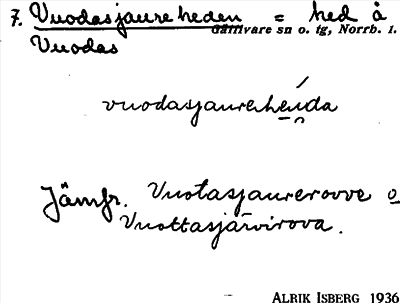 7. Vuodasjaureheden = hed å
Gällivare sn o. tg, Norrb. l.
Vuodas
vuodasjaureheńda
Jämfr. Vuotasjaurerovve o
Vuottasjärvirova.
ALRIK ISBERG 1936